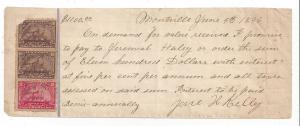 $1100.00 Montville June 4th 1896
On demand for value received I promise
to pay to Jeremiah Haley or order the sum
of Eleven hundred Dollars with interest
at five per cent per annum and all taxes
assessed on said sum. Interest to be paid
semi-annually.